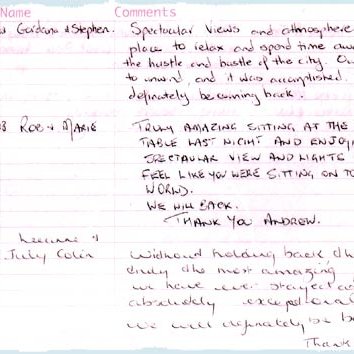 Name Comments
Gordana & Stephen. Spectacular views and athmosphere
place to relax and spend time aw
the hustle and bustle of the city. Ou
to unwind, and it was accomplished.
definately be coming back.
Rob & Marie TRULY AMAZING SITTING AT THE
TABLE LAST NIGHT AND ENJOY
SPECTAULAR VIEW AND LIGHTS
FEEL LIKE YOU WERE SITTING ON TO
WORLD.
WE WILL BACK.
THANK YOU ANDREW.
Leeanne &
July Colin Without holding back th
truly the most amazing
we have ever stayed a
absolutely exceptional
we will definately be b
Thank